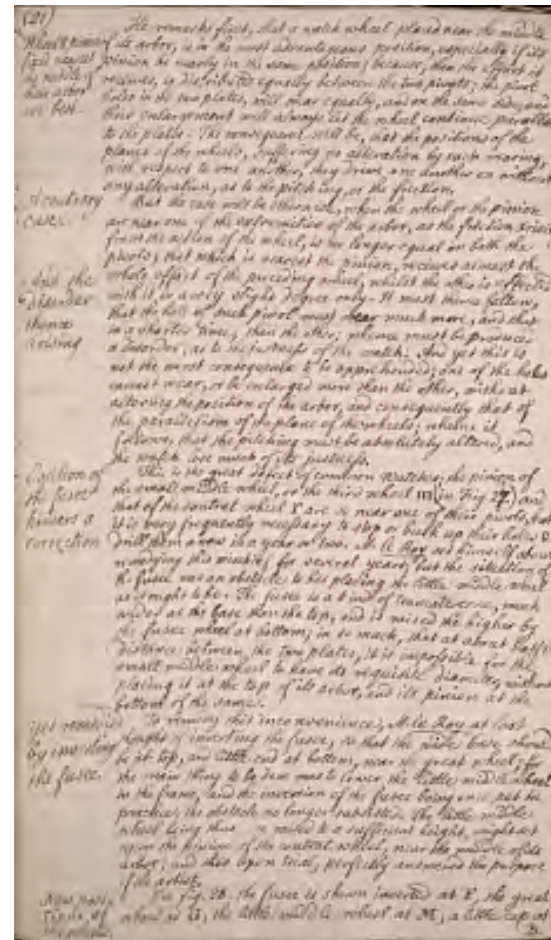 (21)
He remarks first, that a watch wheel placed near the middle
of its arbor, is in the most advantageous position, especially if its
pinion be nearly in the same position; because, then the effort it
receives, is distributed equally between the two pivots; the pivot
holes in the two plates, will wear equally, and on the same side, and
their enlargement will always let the wheel continue parallel
to the plates. The consequence will be, that the positions of the
planes of the wheels, suffering no alteration by such wearing,
with respect to one another, they drive one another on without
any alteration, as to the pitching, or the friction.
A contrary
case.
But the case will be otherwise, when the wheel or the pinion
are near one of the extremities of the arbor, as the friction
from the action of the wheel, is no longer equal on both the
pivots; that which is nearest the pinion, receives almost the
whole effort of the preceding wheel, whilst the other is affected
with it, in a very slight degree only. It must thence follow,
And the
disorder
thence
arising
that the hole of such pivot must wear much more, and that
in a shorter time, than the other; whence must be produced
a disorder, as to the justness of the watch. And yet this is
not the worst consequence to be apprehended; one of the holes
cannot wear, or be enlarged more than the other, without
altering the position of the arbor, and consequently that of
the parallelism of the plane of the wheels; whence it
follows, that the pitching must be absolutely altered, and
the watch lose much of its justness.
Position of
the fusee
hinders a
correction
This is the great defect of common watches; the pinion of
the small middle wheel, or the third wheel m (in Fig 27.) and
that of the contrat wheel are so near one of their pivots, that
it is very frequently necessary to stop or bush up their holes &
drill them anew in a year or two. M. le Roy set himself about
remedying this mischief for several years, but the situation of
the fusee was an obstacle to his placing the little middle wheel
as it ought to be. The fusee is a kind of truncate cone, much
wider at the base than the top, and is raised the higher by
the fusee wheel at bottom; in so much, that at about half
distance between the two plates, it is impossible for the
small middle wheel to have its requisite diameter, without
placing it at the top of its arbor, and its pinion at the
bottom of the same.
by inverting
the fusee.
To remedy this inconvenience, M. le Roy at last
thought of inverting the fusee, so that the wide base should
be at top, and little end at bottom, near the great wheel; for
the main thing to be done was to lower the little middle wheel
in the frame, and the inversion of the fusee being once put in
practice, the obstacle no longer subsisted. The little middle
wheel being thus raised to a sufficient height, might act
upon the pinion of the contrat wheel, near the middle of its
arbor; and this upon trial, perfectly answered the purpose
of the artist.
In fig. 28. the fusee is shown inverted at F, the great
wheel at, the little middle wheel at M, a little cap at